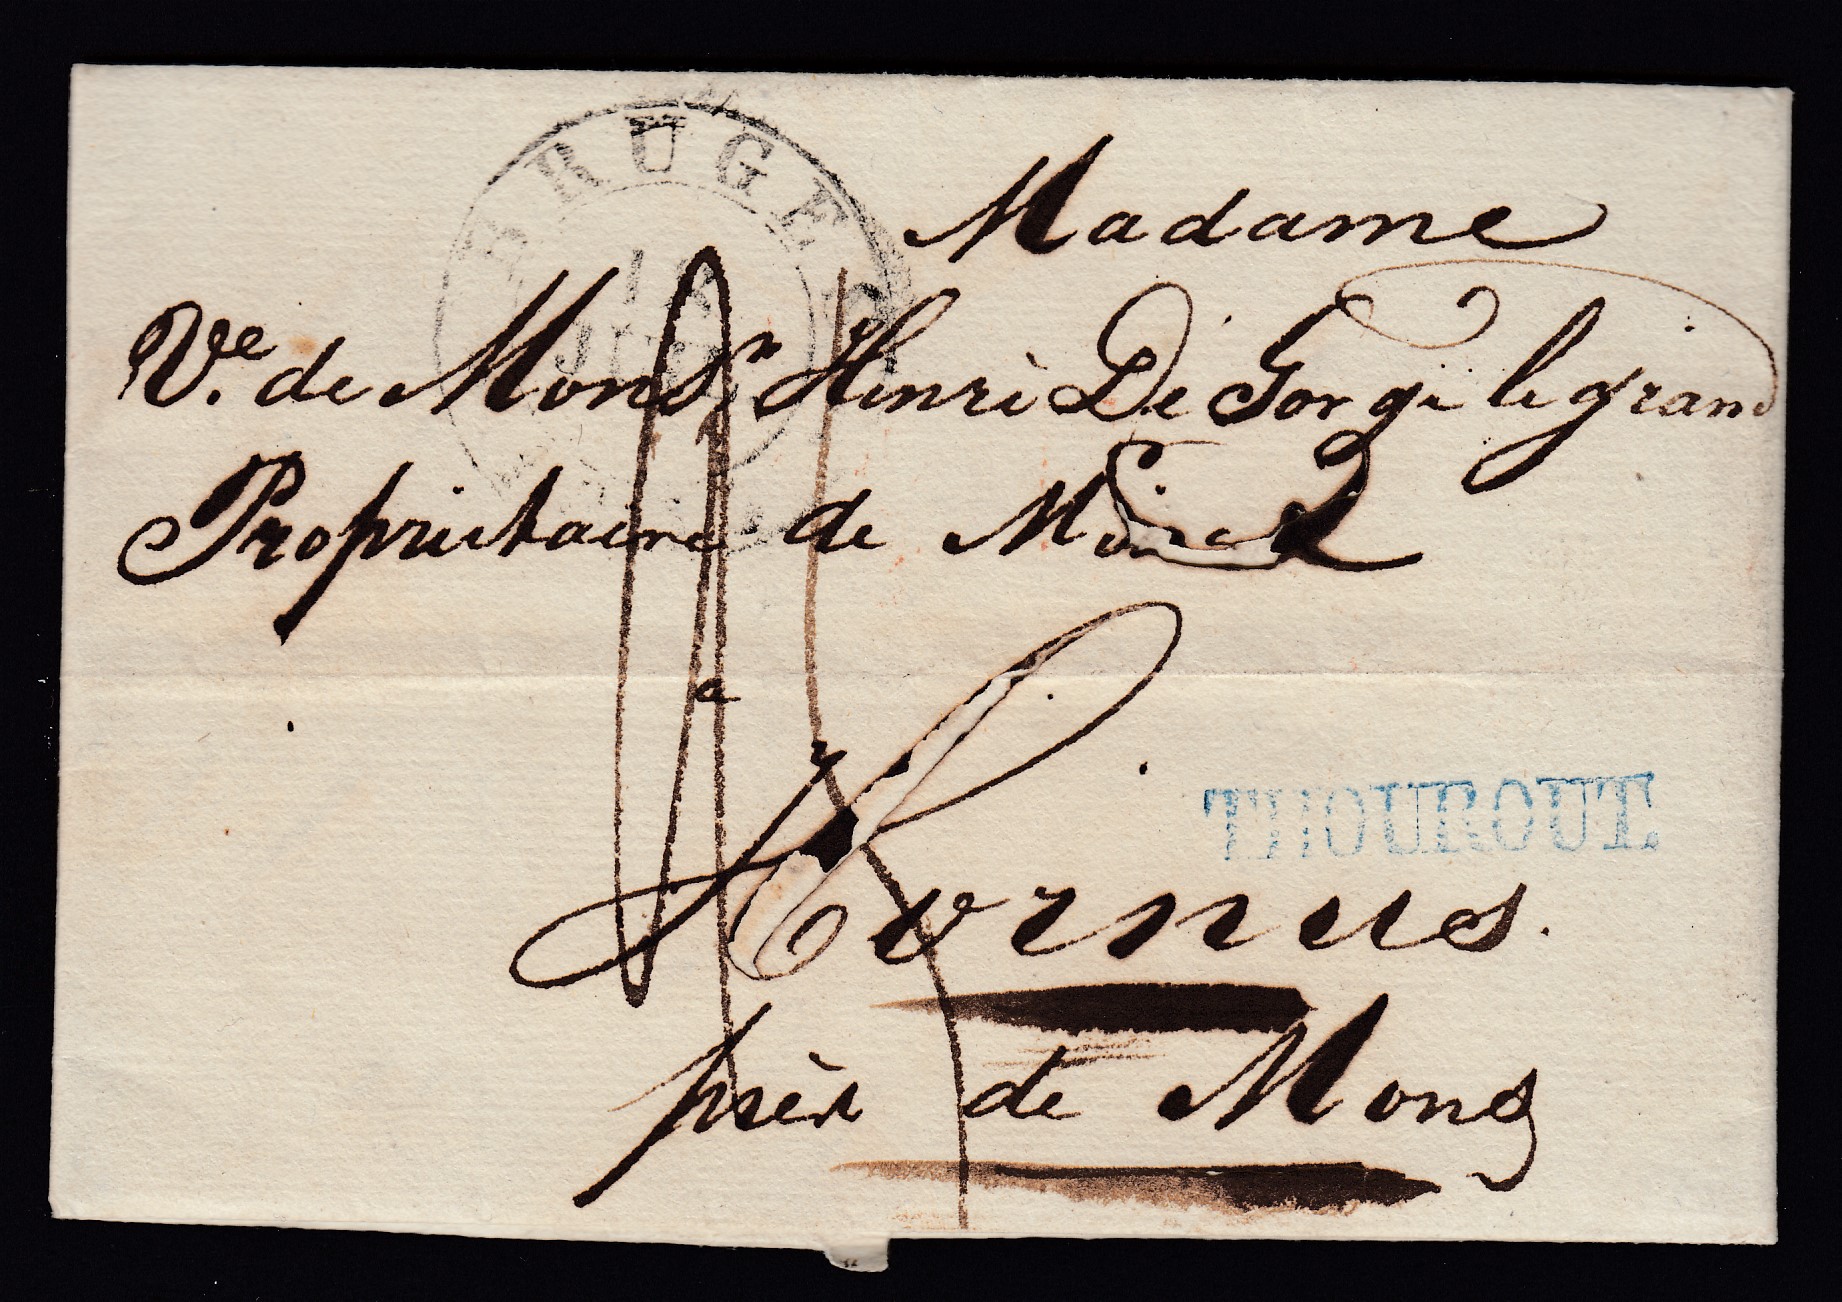 BRUGES
Madame
Ve. de Monsr. Henri De Gorge le grand
Propriétaire de
a
Hornus.
près de Mons
THOUROUT